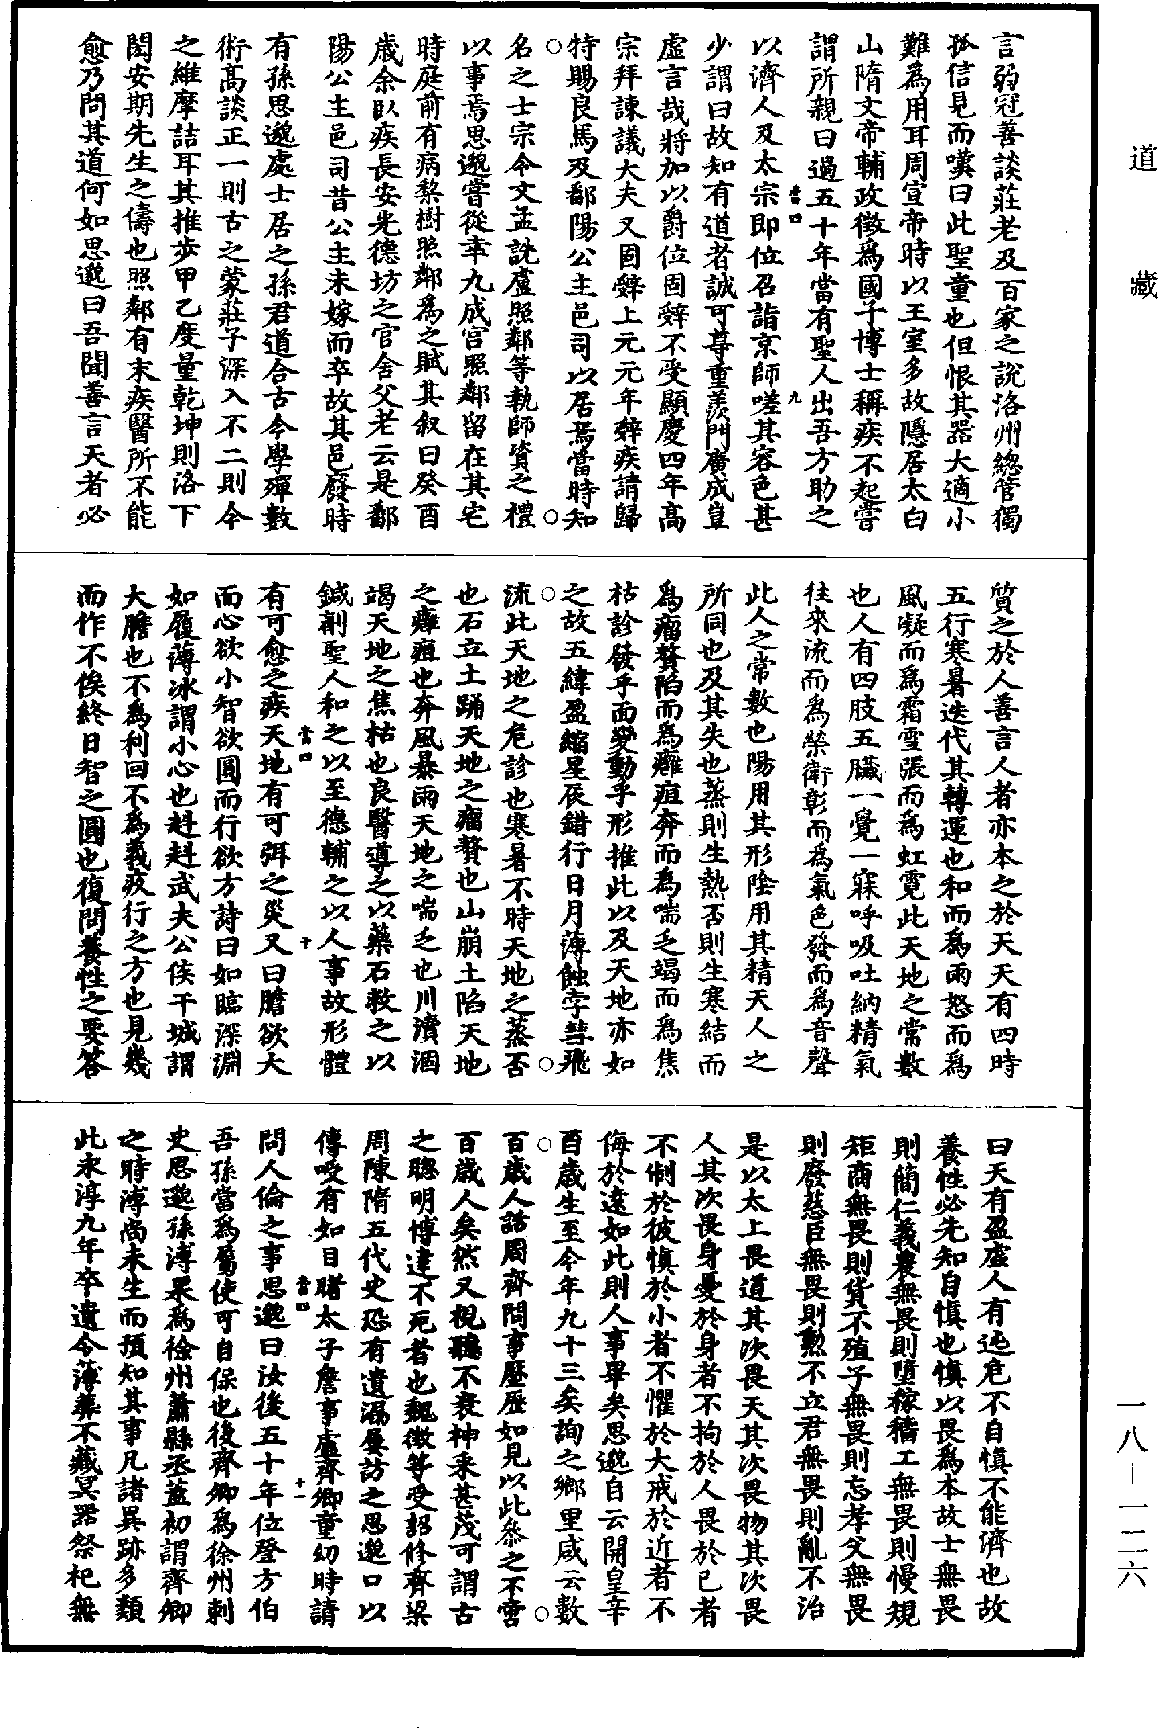 道藏
言弱冠善談莊老及百家之說洛州總管獨
孤信見而嘆曰此聖童也但恨其器大適小
難為用耳周宣帝時以王室多故隱居太白
山隋文帝輔政徵為國子博士稱疾不起嘗
謂所親曰過五十年當有聖人出吾方助之
以濟人及太宗即位召詣京師嗟其容色甚
少謂曰故知有道者誠可尊重羨門廣成豈
虛言哉將加以爵位固辭不受顯慶四年高
宗拜諫議大夫又固辭上元元年辭疾請歸
特賜良馬及鄱陽公主邑司以居焉當時知
名之士宗令文孟詵盧照鄰等執師資之禮
以事焉思邈嘗從幸九成宮照鄰留在其宅
時庭前有病梨樹照鄰為之賦其叙曰癸酉
歲余臥疾長安光德坊之官舍父老云是鄱
陽公主邑司昔公主未嫁而卒故其邑廢時
有孫思邈處士居之孫君道合古今學殫數
術高談正一則古之蒙莊子深入不二則今
之維摩詰耳其推步甲乙度量乾坤則洛下
閎安期先生之儔也照鄰有末疾醫所不能
愈乃問其道何如思邈曰吾聞善言天者必
質之於人善言人者亦本之於天天有四時
五行寒暑迭代其轉運也和而為雨怒而為
風凝而為霜雪張而為虹霓此天地之常數
也人有四肢五臟一覺一寐呼吸吐納精氣
往來流而為榮衛彰而為氣色發而為音聲
此人之常數也陽用其形陰用其精天人之
所同也及其失也蒸則生熱否則生寒結而
為瘤贅陷而為癰疽奔而為喘乏竭而為焦
枯診發乎面變動乎形推此以及天地亦如
之故五緯盈縮星辰錯行日月薄蝕孛彗飛
流此天地之危診也寒暑不時天地之蒸否
也石立土踊天地之瘤贅也山崩土陷天地
之癰疽也奔風暴雨天地之喘乏也川瀆涸
竭天地之焦枯也良醫導之以藥石救之以
鍼劑聖人和之以至德輔之以人事故形體
有可愈之疾天地有可弭之災又曰膽欲大
而心欲小智欲圓而行欲方詩曰如臨深淵
如履薄冰謂小心也赳赳武夫公侯干城謂
大膽也不為利回不為義疚行之方也見幾
而作不俟終日智之圓也復問養性之要答
曰天有盈虛人有迍危不自慎不能濟也故
養性必先知自慎也慎以畏為本故士無畏
則簡仁義農無畏則墮稼穡工無畏則慢規
矩商無畏則貨不殖子無畏則忘孝父無畏
則廢慈臣無畏則勳不立君無畏則亂不治
是以太上畏道其次畏天其次畏物其次畏
人其次畏身憂於身者不拘於人畏於己者
不制於彼慎於小者不懼於大戒於近者不
侮於遠如此則人事畢矣思邈自云開皇辛
酉歲生至今年九十三矣詢之鄉里咸云數
百歲人話周齊間事歷歷如見以此參之不啻
百歲人矣然又視聽不衰神采甚茂可謂古
之聰明博達不死者也魏徵等受詔修齊梁
周陳隋五代史恐有遺漏屢訪之思邈口以
傳授有如目睹太子詹事盧齊卿童幼時請
問人倫之事思邈曰汝後五十年位登方伯
吾孫當為屬使可自保也後齊卿為徐州刺
史思邈孫溥果為徐州蕭縣丞蓋初謂齊卿
之時溥尚未生而預知其事凡諸異跡多類
此永淳九年卒遺令薄葬不藏冥器祭祀無
一八—一二六